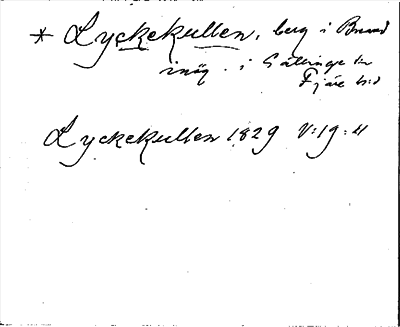 * Lyckekullen, berg i Brand
inäg. i Gällinge sn
Fjäre hd
Lyckekullen 1829 V:19:4